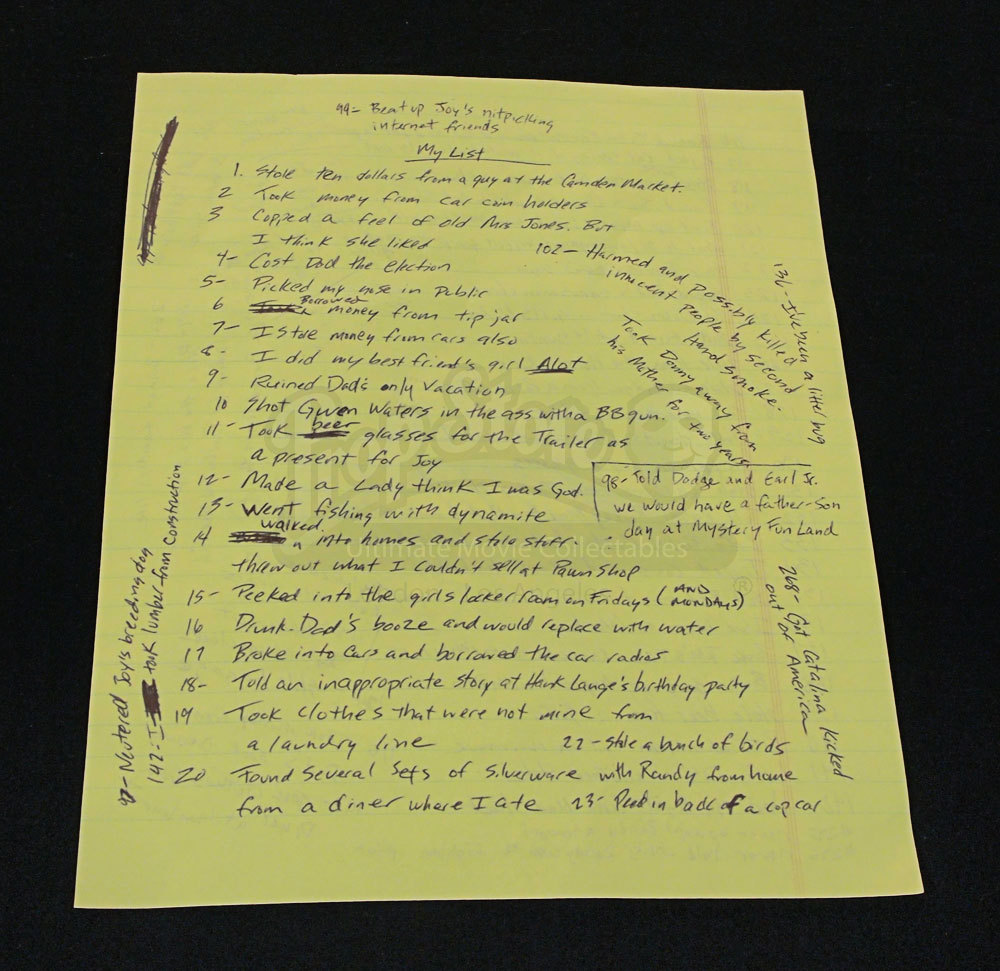 99- Beat up Joy's nitpicking
internet friends
My List
1. Stole ten dollars from a guy at the Camden Market.
2 Took money from car coin holders
3 Copped a feel of old Mrs Jones. But
I think she liked
4- Cost Dad the election
5- Picked my nose in Public
6 Borrowed money from tip jar
7- I stole money from cars also
8- I did my best friend's girl Alot
9- Ruined Dad's only Vacation
10 Shot Gwen Waters in the ass with a BB gun.
11- Took beer glasses for the Trailer as
a present for Joy
12- Made a Lady think I was God.
13- Went fishing with dynamite
14 walked into homes and stole stuff.
threw out what I couldn't sell at Pawn Shop
15- Peeked into the girls locker room on Fridays (AND MONDAYS)
16 Drunk Dad's booze and would replace with water
17 Broke into Cars and borrowed the car radios
18- Told an inappropriate story at Hank Lange's birthday party
19 Took clothes that were not mine from
a laundry line
22- stole a bunch of birds
20 Found several sets of silverware with Randy from home
from a diner where I ate
23- Peed in back of a cop car
102- Harmed and possibly killed
innocent people by second
hand smoke.
Took Donny away from
his Mother for two years
136- I've been a litter bug
98- Told Dodge and Earl Jr.
we would have a father-son
day at Mystery Fun Land
268- Got Catalina kicked
out of America
Neutered Joy's breeding dog
142- I took lumber from construction
Ultimate Movie Collectables
®